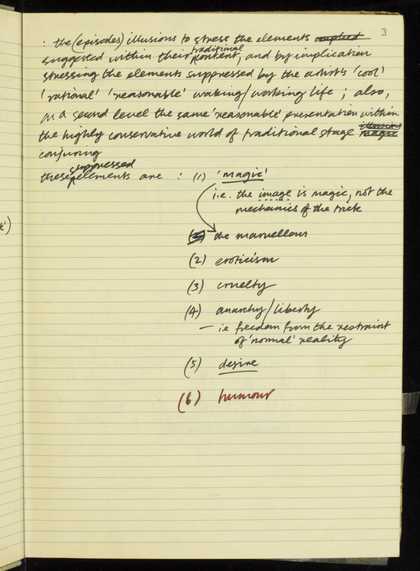 3
: the (episodes) illusions to stress the elements implied
suggested within their traditional content, and by implication
stressing the elements suppressed by the artist's 'cool'
'rational' 'reasonable' waking/working life ; also,
on a second level the same 'reasonable' presentation within
the highly conservative world of traditional stage illusion magic
conjuring
these suppressed elements are : (1) 'magic'
i.e. the image is magic, not the
mechanics of the trick
the marvellous
(2) eroticism
(3) cruelty
(4) anarchy/liberty
– ie freedom from the restraint
of 'normal' reality
(5) desire
(6) humour
')